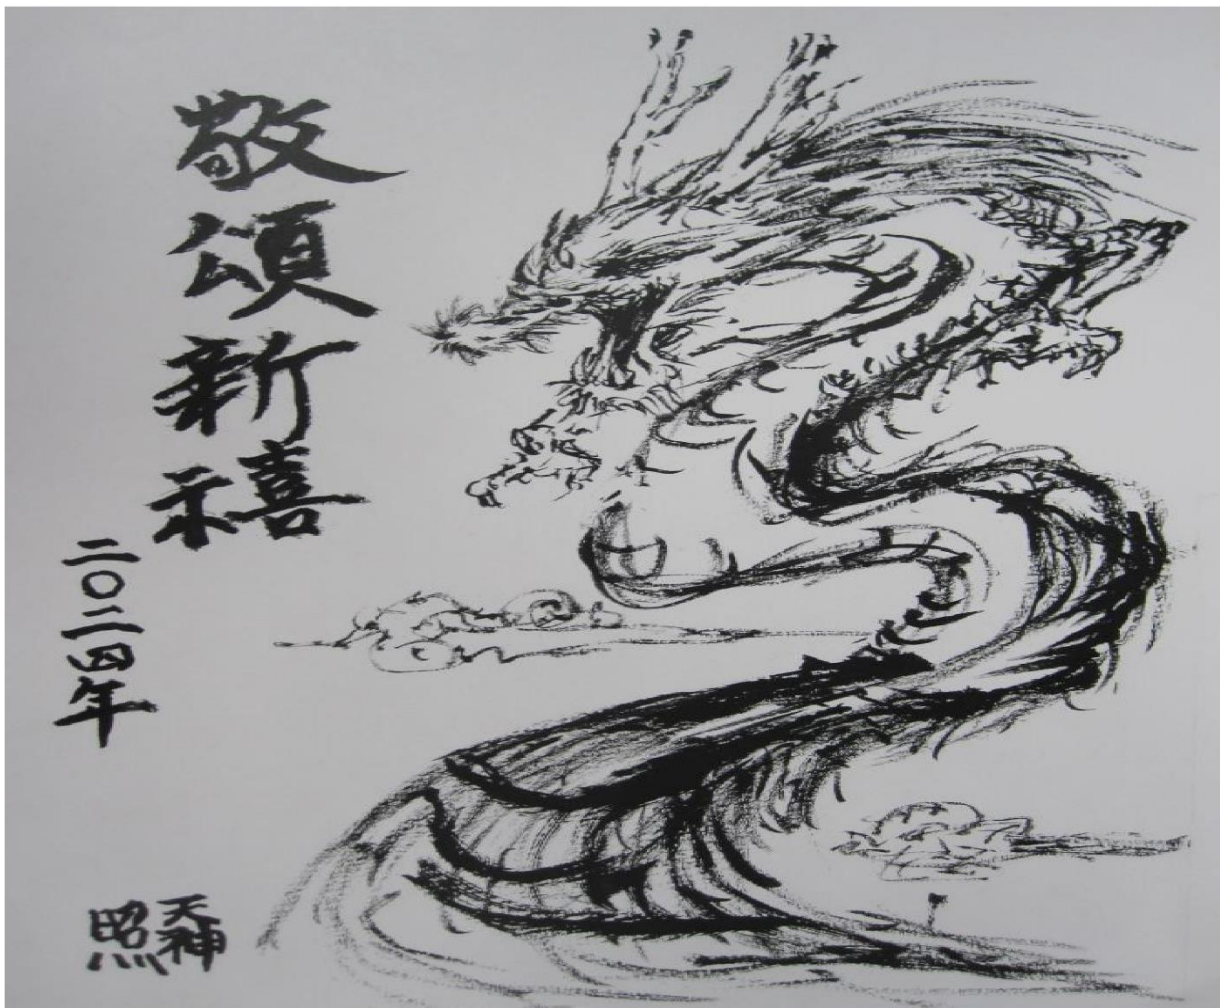 敬頌新禧
二〇二四年
天神
照